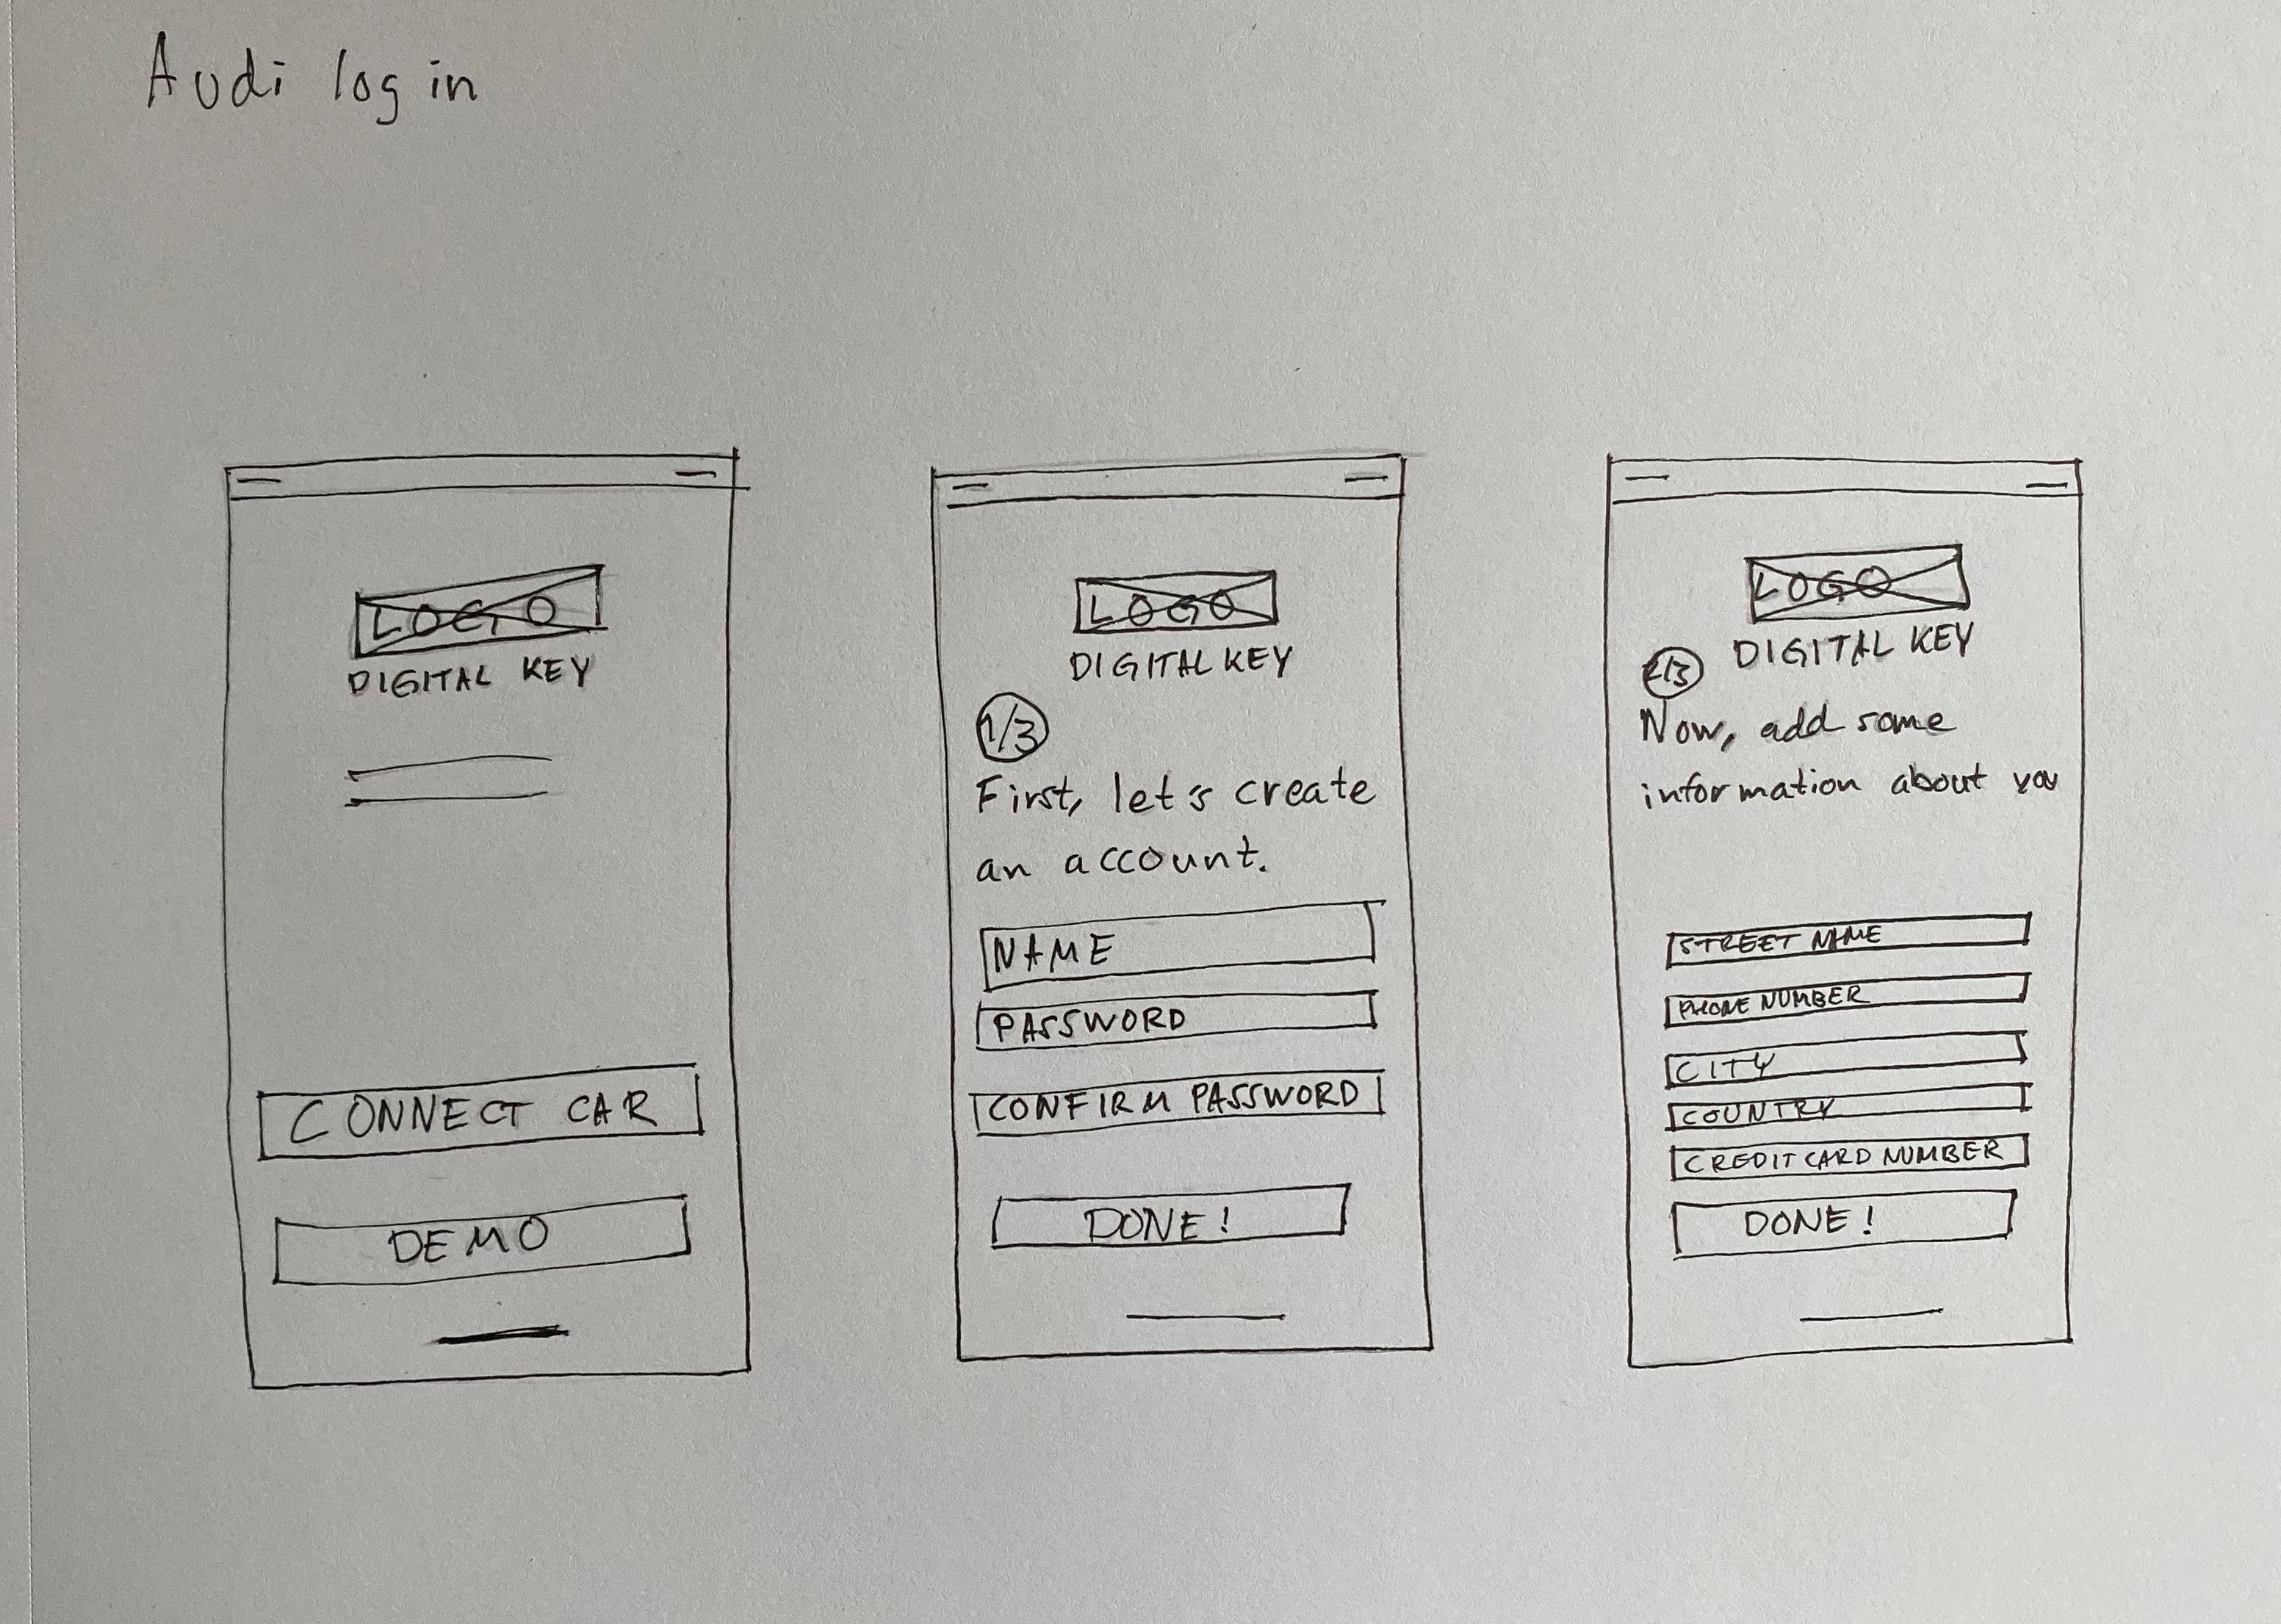 Audi log in
LOGO
DIGITAL KEY
CONNECT CAR
DEMO
LOGO
DIGITAL KEY
1/3
First, let's create
an account.
NAME
PASSWORD
CONFIRM PASSWORD
DONE!
LOGO
DIGITAL KEY
2/3
Now, add some
information about you
STREET NAME
PHONE NUMBER
CITY
COUNTRY
CREDIT CARD NUMBER
DONE!